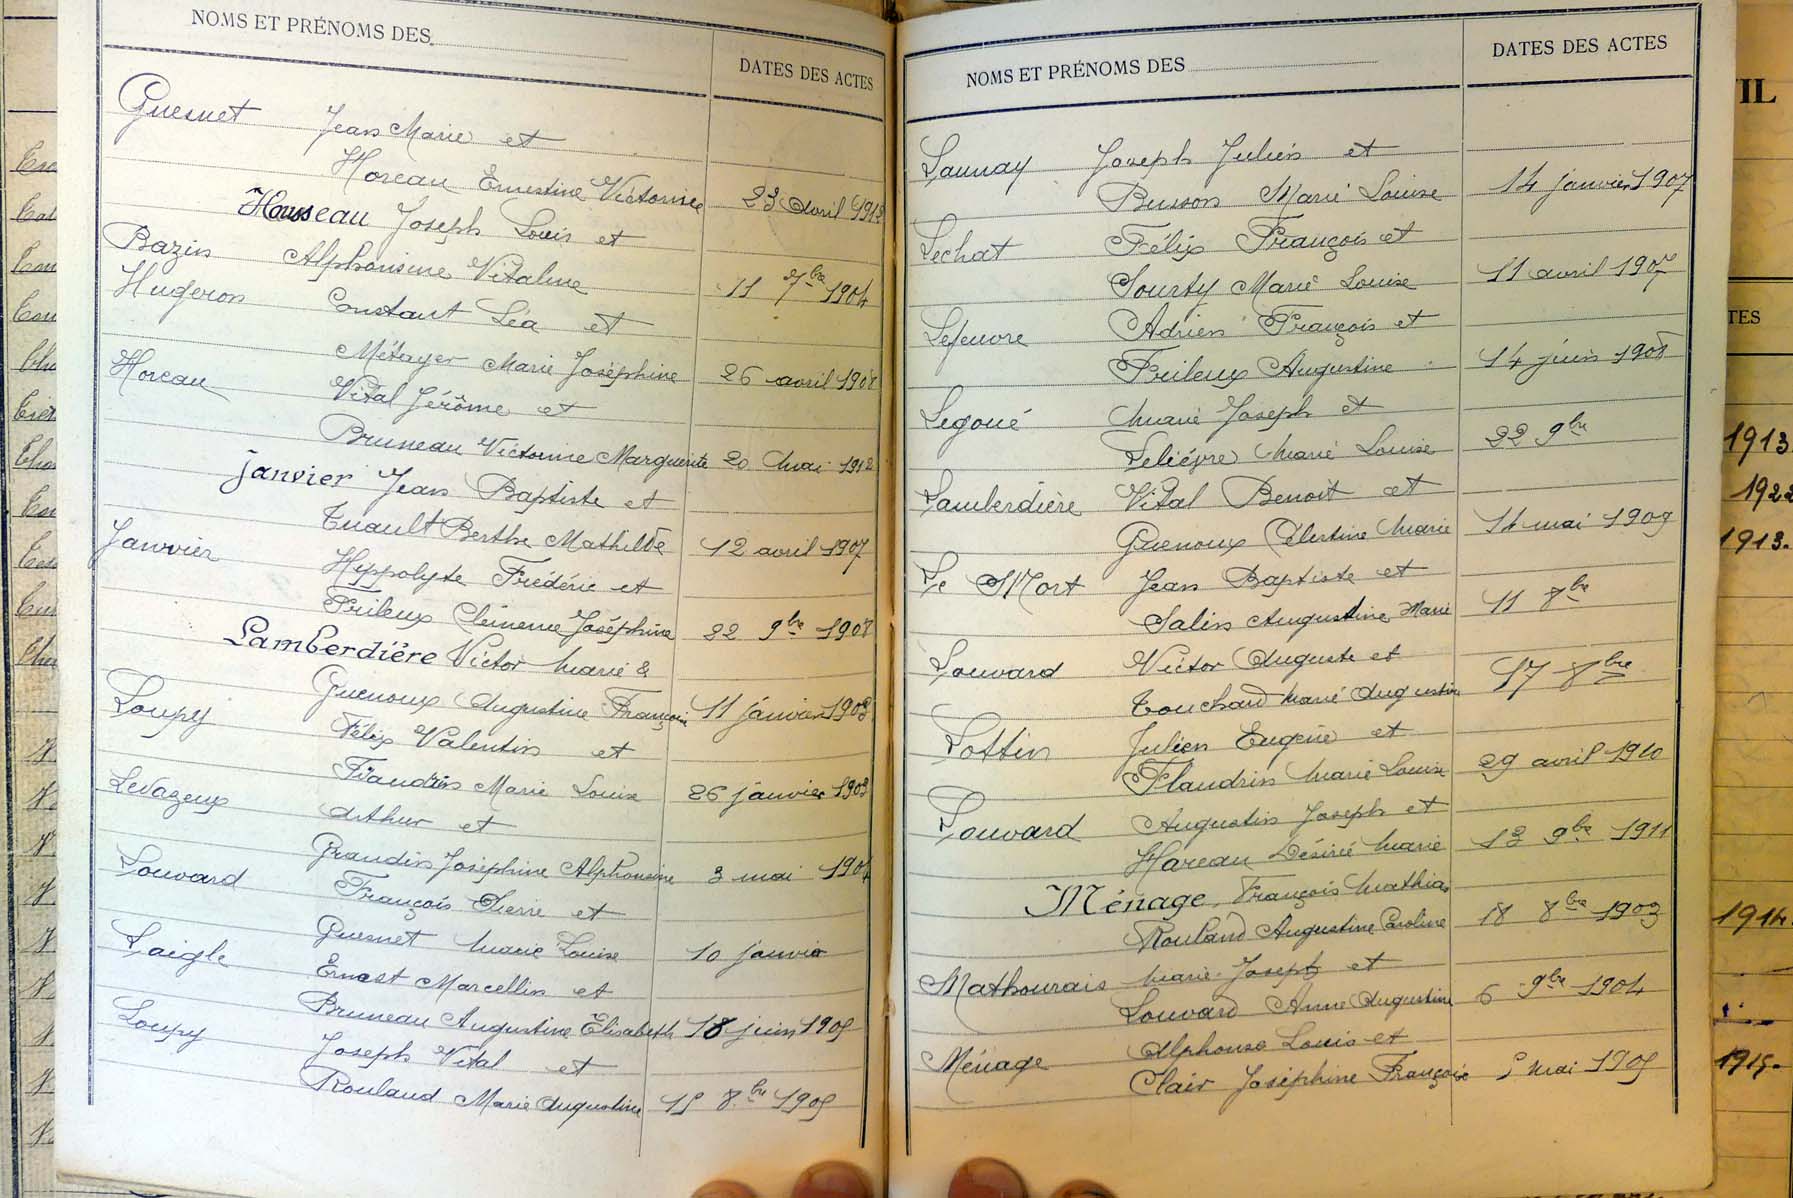 NOMS ET PRÉNOMS DES
DATES DES ACTES
Guesnet Jean Marie et
Horeau Ernestine Victorine 23 avril 1912
Housseau Joseph Louis et
Bazin Alphonsine Vitaline 11 7bre 1904
Hugeron Constant Léa et
Métayer Marie Joséphine 26 avril 1908
Horeau Vital Jérôme et
Bruneau Victorine Marguerite 20 mai 1912
Janvier Jean Baptiste et
Tuault Berthe Mathilde 12 avril 1907
Janvier Hyppolyte Frédéric et
Frileux Clémence Joséphine 22 9bre 1908
Lamberdière Victor Marie &
Guenoux Augustine Françoise 11 janvier 1903
Loupy Félix Valentin et
Flandrin Marie Louise 26 janvier 1903
Levazeux Arthur et
Grandin Joséphine Alphonsine 3 mai 1904
Louvard François Pierre et
Guesnet Marie Louise 10 janvier
Laigle Ernest Marcellin et
Bruneau Augustine Elisabeth 18 juin 1905
Loupy Joseph Vital et
Rouland Marie Augustine 15 8bre 1905
NOMS ET PRÉNOMS DES
DATES DES ACTES
Launay Joseph Julien et
Buison Marie Louise 14 janvier 1907
Lechat Félix François et
Sourty Marie Louise 11 avril 1907
Lefeuvre Adrien François et
Frileux Augustine 14 juin 1908
Legoué Marie Joseph et
Lelièvre Marie Louise 22 9bre
Lamberdière Vital Benoit et
Guenoux Célestine Marie 14 mai 1909
Le Mort Jean Baptiste et
Salin Augustine Marie 11 8bre
Louvard Victor Auguste et
Touchard Marie Augustine 17 8bre
Lottin Julien Eugène et
Flandrin Marie Louise 29 avril 1910
Louvard Augustin Joseph et
Hareau Désirée Marie 13 9bre 1911
Ménage François Mathias
Rouland Augustine Caroline 18 8bre 1903
Mathourais Marie Joseph et
Louvard Anne Augustine 6 9bre 1904
Ménage Alphonse Louis et
Clair Joséphine Françoise 5 mai 1905
IL
TES
1913
1922
1913.
1914
1915.